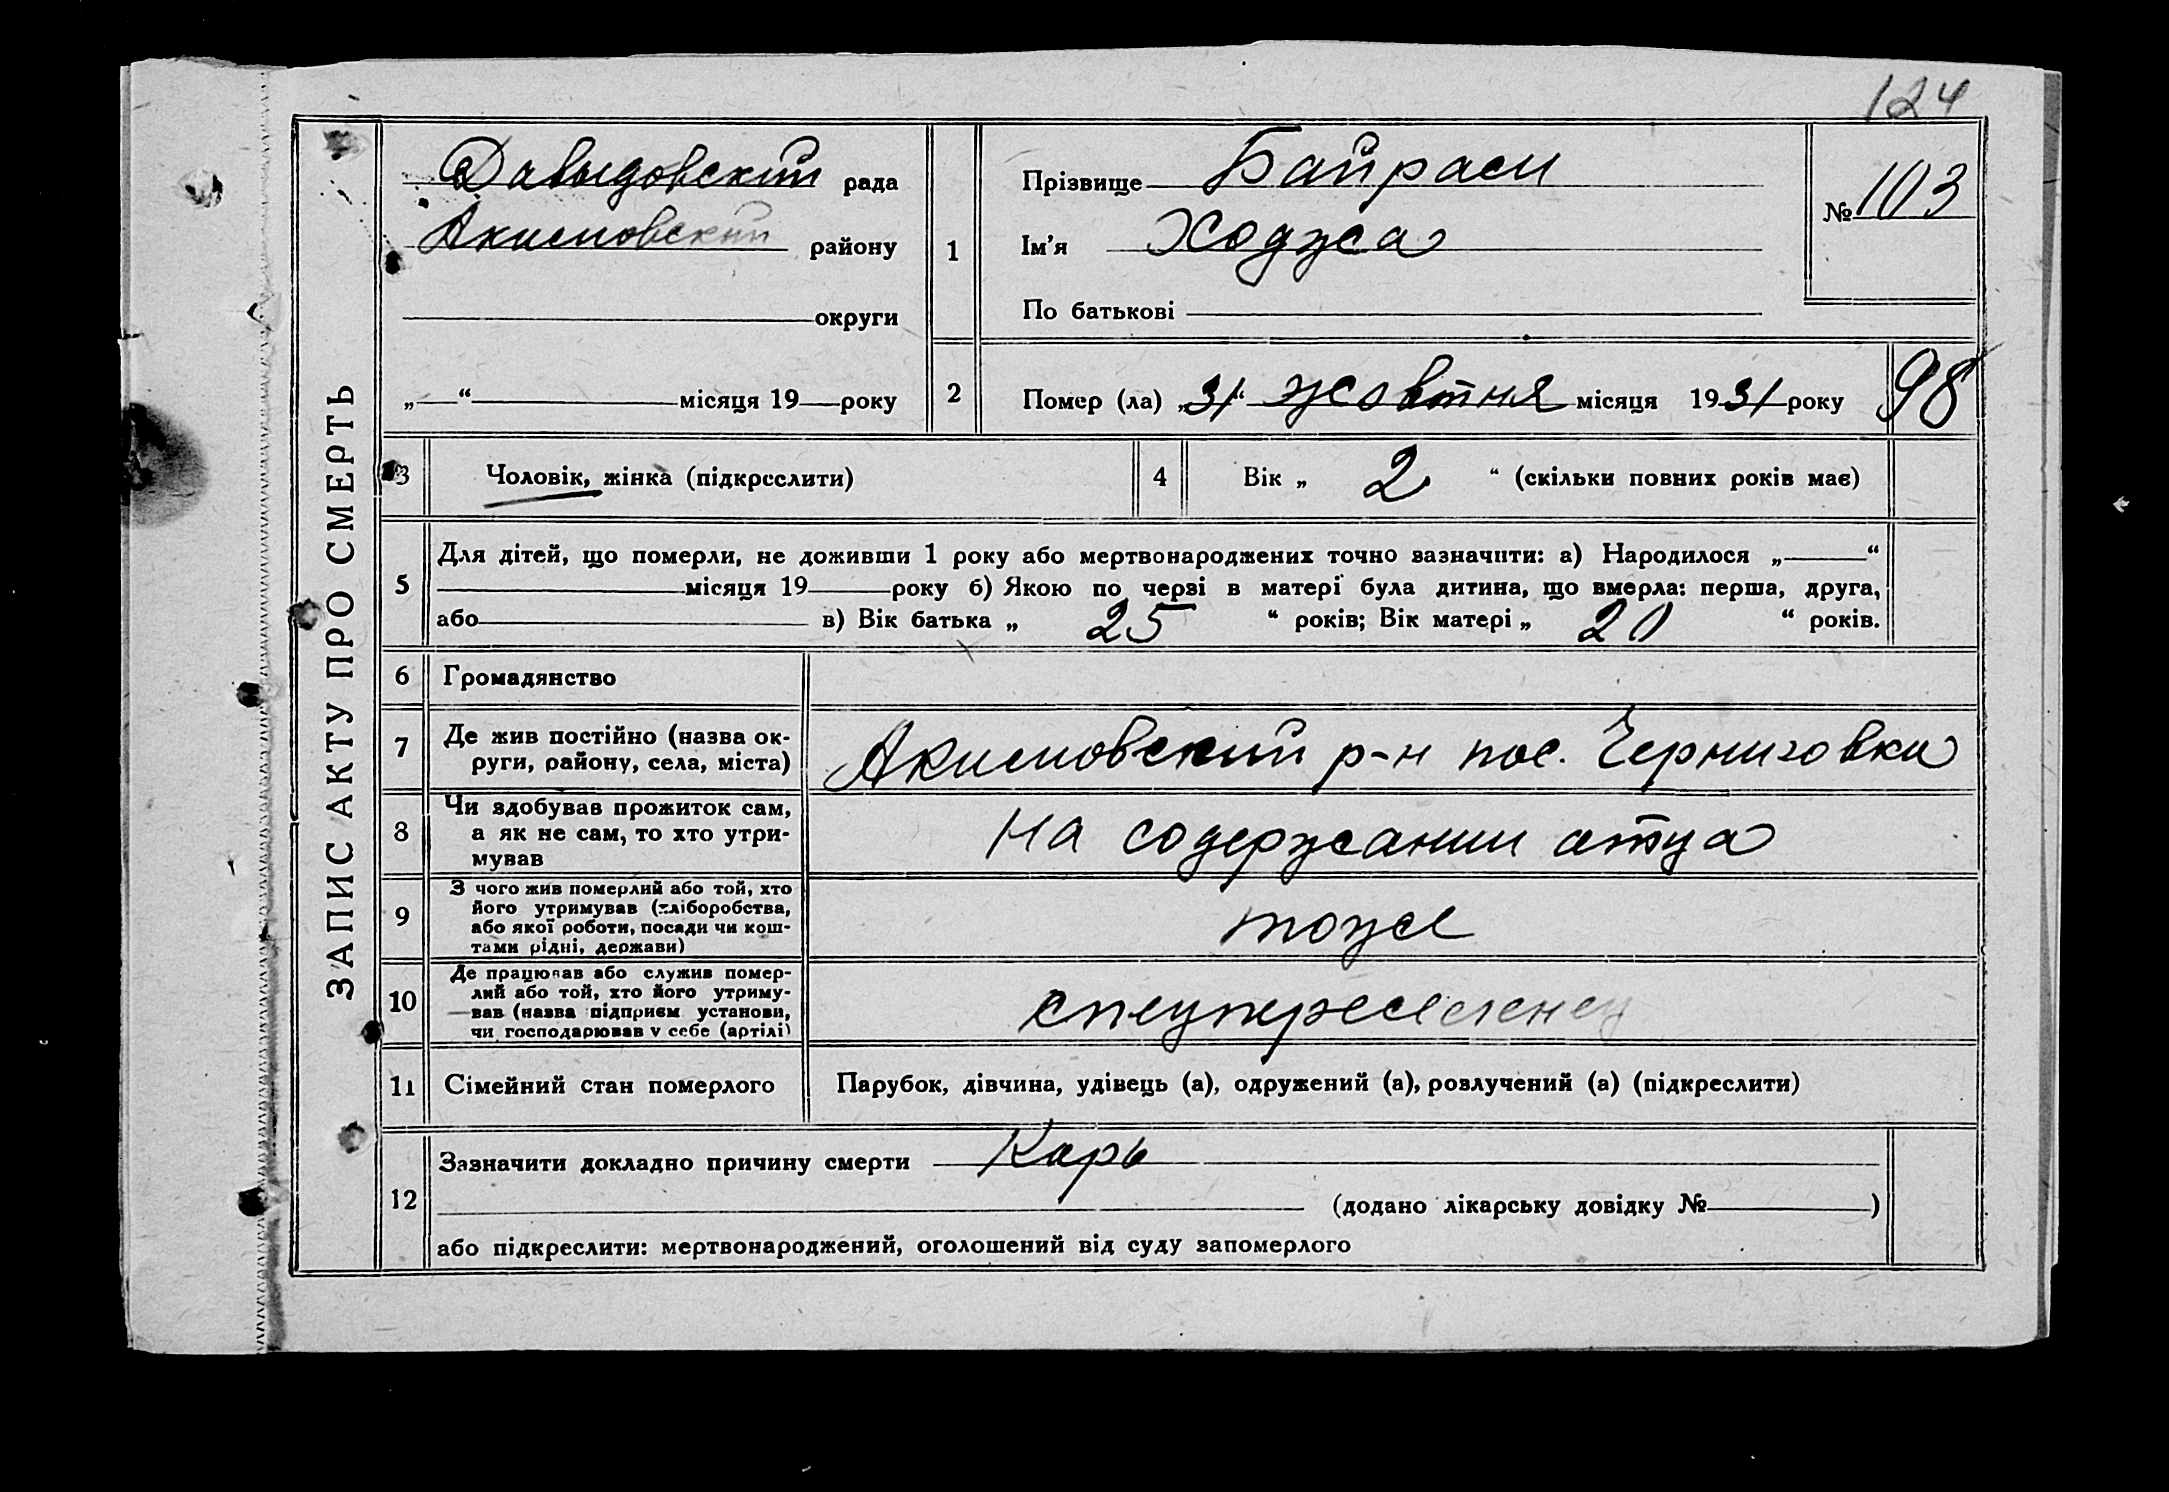 124
ЗАПИС АКТУ ПРО СМЕРТЬ
Давыдовский рада
Акимовский району
округи
„ “ місяця 19 року
1
Прізвище Байрам
Ім'я Ходжа
По батькові
№ 103
2
Помер (ла) „31“ жовтня місяця 1931 року
98
3 Чоловік, жінка (підкреслити)
4 Вік „ 2 “ (скільки повних років має)
5 Для дітей, що померли, не доживши 1 року або мертвонароджених точно зазначити: а) Народилося „ “
місяця 19 року б) Якою по черзі в матері була дитина, що вмерла: перша, друга,
або в) Вік батька „ 25 “ років; Вік матері „ 20 “ років.
6 Громадянство
7 Де жив постійно (назва ок-
руги, району, села, міста)
Акимовский р-н пос. Черниговка
8 Чи здобував прожиток сам,
а як не сам, то хто утри-
мував
На содержании отца
9 З чого жив померлий або той, хто
його утримував (хліборобства,
або якої роботи, посади чи кош-
тами рідні, держави)
тоже
10 Де працював або служив помер-
лий або той, хто його утриму-
вав (назва підприєм. установи,
чи господарював у себе (артілі)
спецпереселенец
11 Сімейний стан померлого
Парубок, дівчина, удівець (а), одружений (а), розлучений (а) (підкреслити)
12 Зазначити докладно причину смерти Корь
(додано лікарську довідку № )
або підкреслити: мертвонароджений, оголошений від суду запомерлого